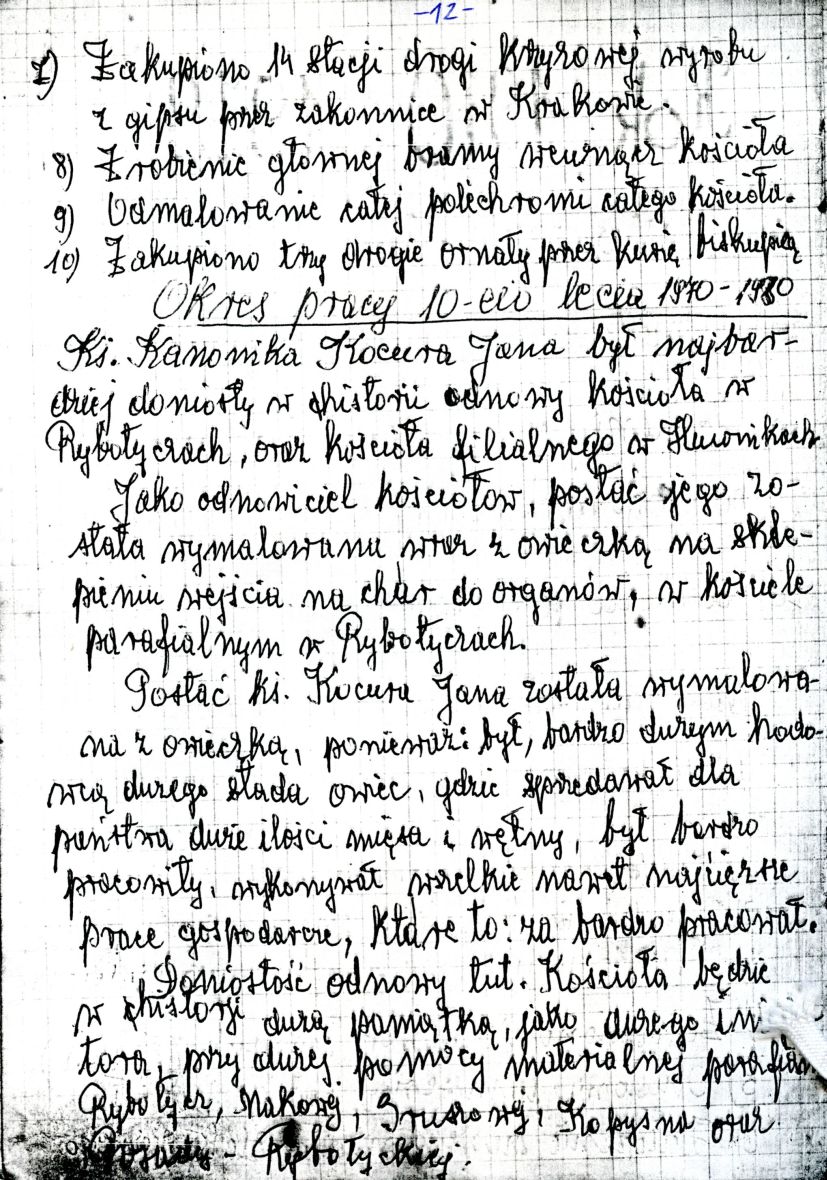 -12-
7) Zakupiono 14 stacji drogi krzyzowej wyrobu
z gipsu przez zakonnice w Krakowie.
8) Zrobienie głownej bramy wewnącz kościoła
9) Odmalowanie całej polichromi całego kościoła.
10) Zakupiono trzy drogie ornały przez kurię biskupią
Okres pracy 10-cio lecia 1970-1980
Ks. Kanonika Kocura Jana był najbar-
dziej doniosły w chistorii odnowy kościoła w
Rybotyczach, oraz kościoła filialnego w Huwnikach
Jako odnowiciel kościołow, postać jego zo-
stała wymalowana wraz z owieczką na skle-
pieniu wejścia na chór do organów, w kościele
parafialnym w Rybotyczach.
Postać ks. Kocura Jana została wymalowa-
na z owieczką, ponieważ: był, bardzo dużym hodo-
wcą dużego stada owiec, gdzie sprzedawał dla
państwa duże ilości mięsa i wełny, był bardzo
pracowity, wykonywał wszelkie nawet najcięższe
prace gospodarcze, które to: za bardzo pracował.
Doniosłość odnowy tut. Kościoła będzie
w chistorji dużą pamiątką, jako dużego
tora, przy dużej pomocy materialnej parafian
Rybotycz, Makowej, Gruszowej, Kopysna oraz
Posady - Rybotyckiej.